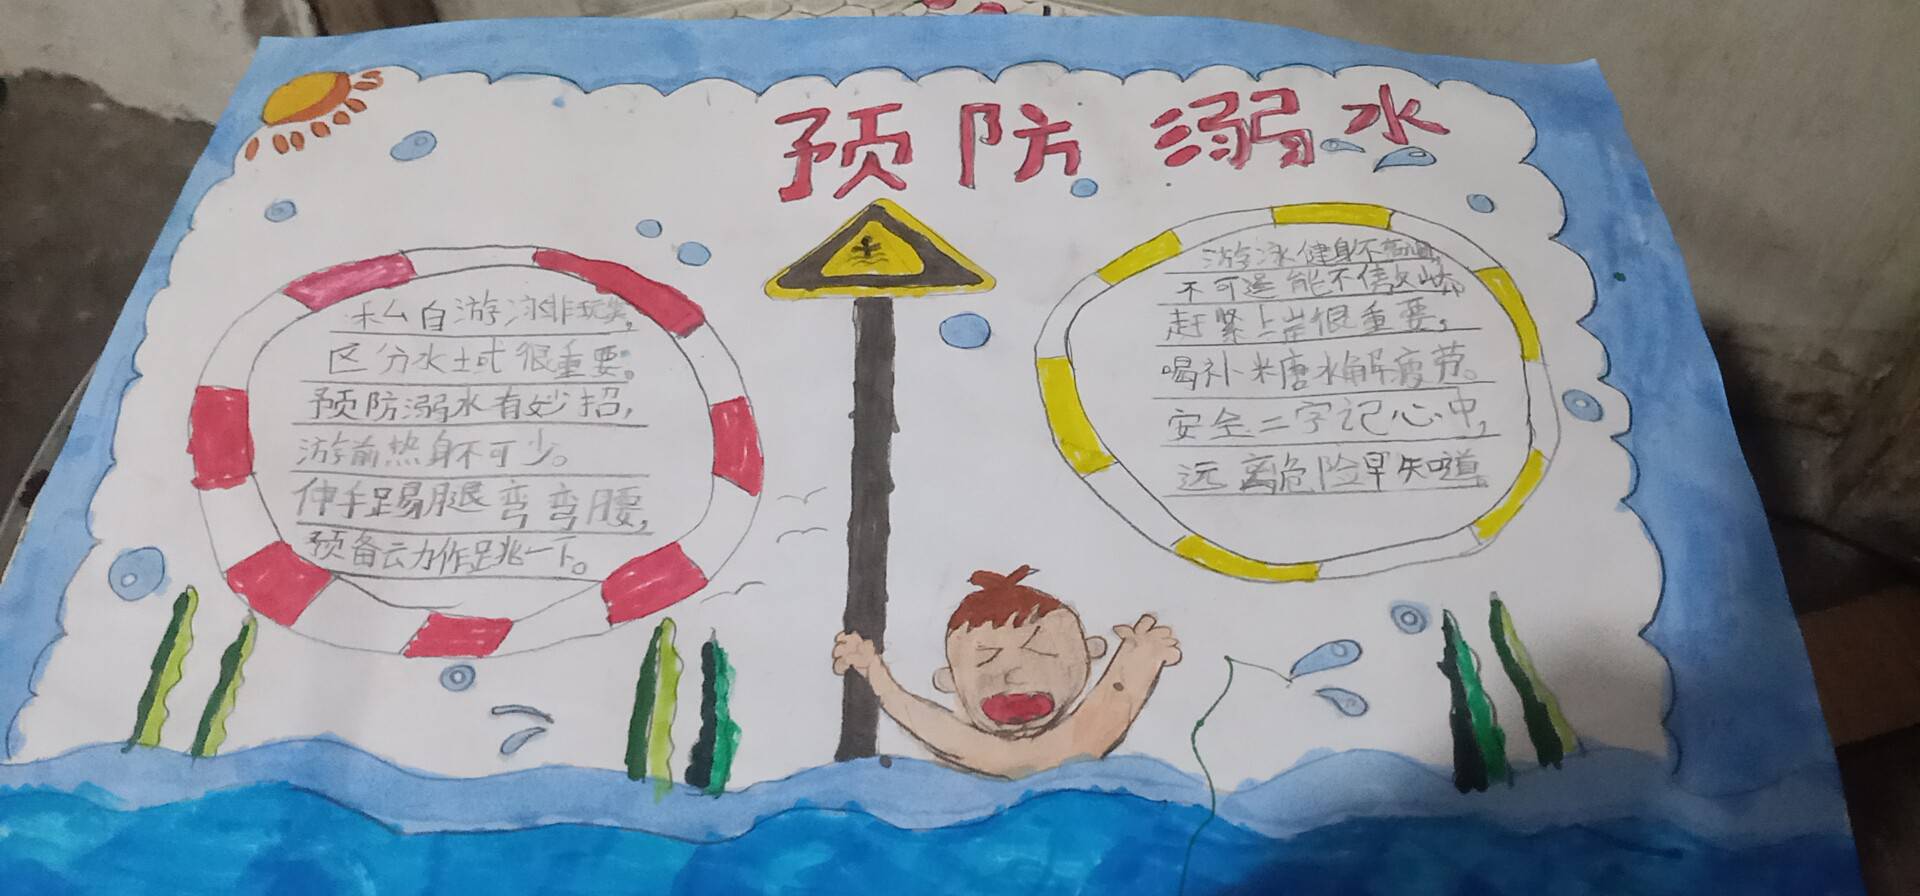 预防溺水
私自游泳非玩笑,
区分水域很重要。
预防溺水有妙招,
游前热身不可少。
伸手踢腿弯弯腰,
预备动作跳一下。
游泳健身不
不可逞能不
赶紧上岸很重要,
喝补米唐水解疲劳。
安全二字记心中,
远离危险早知道。